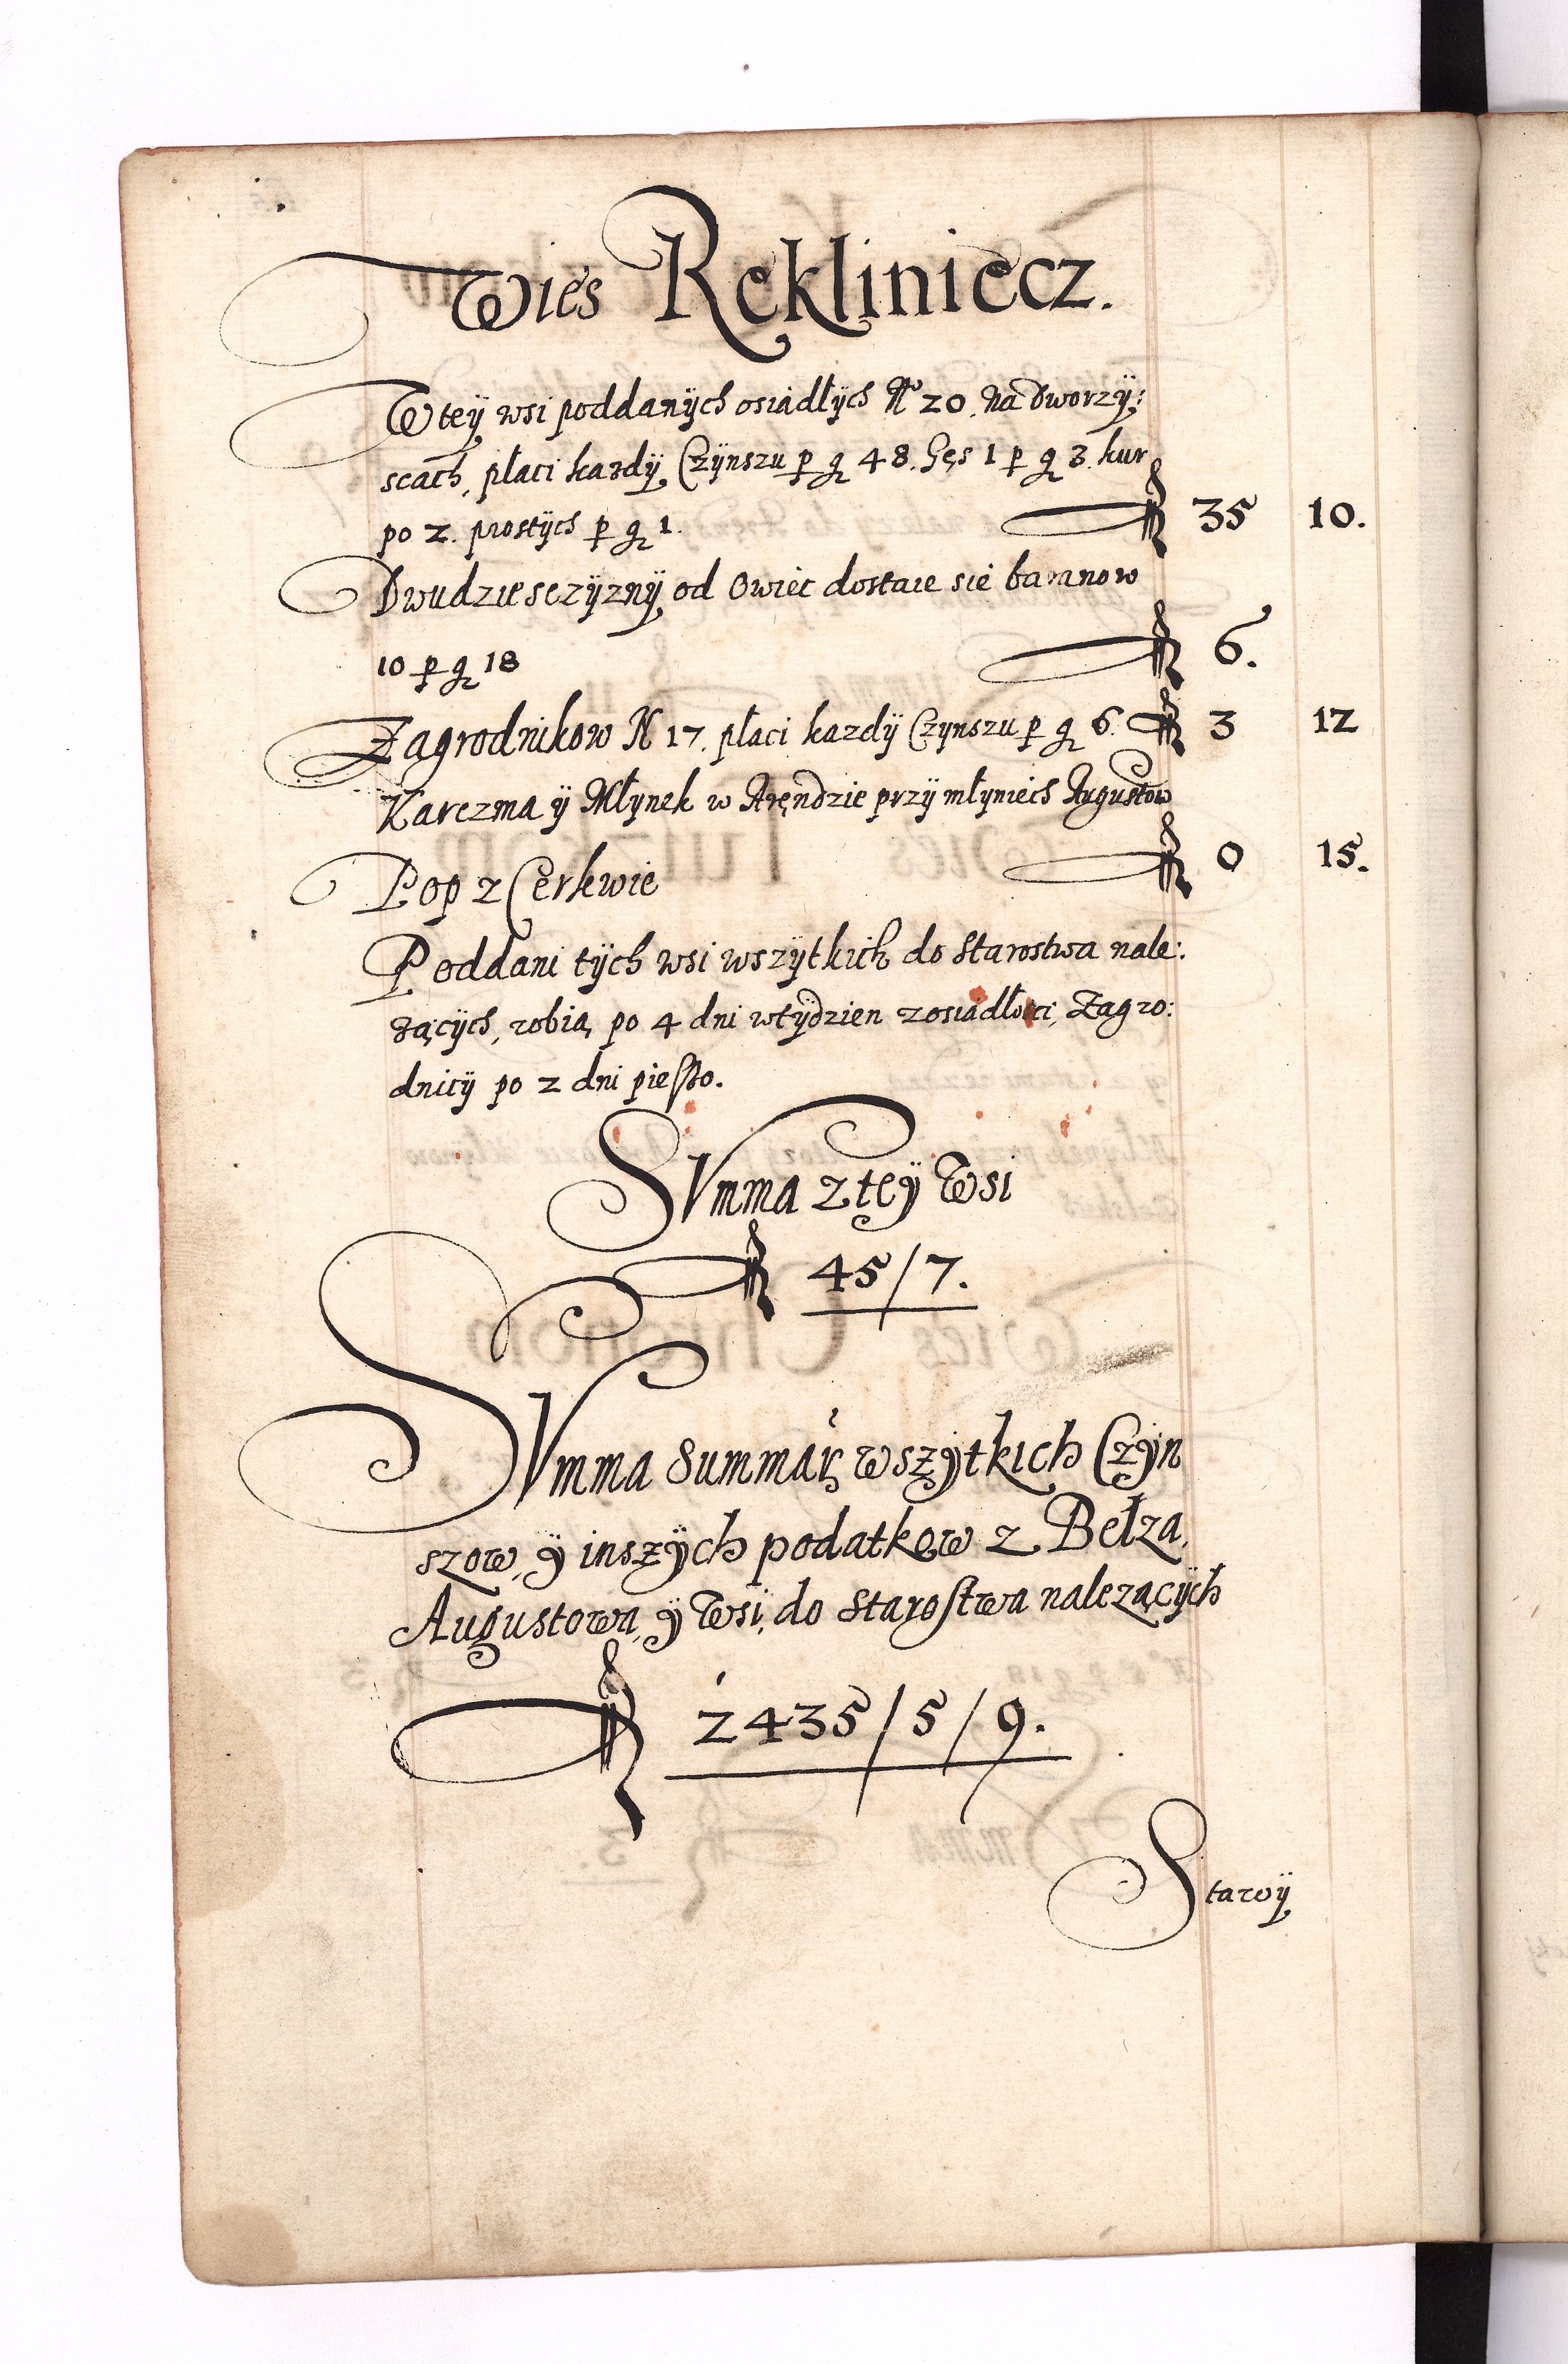 Wies Rekliniecz.
W teÿ wsi poddanÿch osiadłÿch No 20. na Dworzÿ:
scach, płaci kazdÿ Czÿnszu p gr 48. Gęs 1 p gr 3. kur
po 2. prostÿch p gr 1. 35 10.
Dwudziesczÿznÿ od Owiec dostaie sie baranow
10 p gr 18 6.
Zagrodnikow N 17. płaci kazdÿ Czynszu p gr 6. 3 12
Karczma ÿ Młynek w Aręndzie przy młyniech Augustow
Pop z Cerkwie 0 15.
Poddani tÿch wsi wszÿtkich do Starostwa nale:
żącÿch, robią po 4 dni w tÿdzien z osiadłosci, Zagro:
dnicÿ po 2 dni pieszo.
SVmma z teÿ Wsi
45/7.
SVmma Summar, wszÿtkich Czÿn
szow, ÿ inszÿch podatkow z Bełza,
Augustowa, ÿ Wsi, do Starostwa nalezącÿch
2435/5/9.
Starÿ